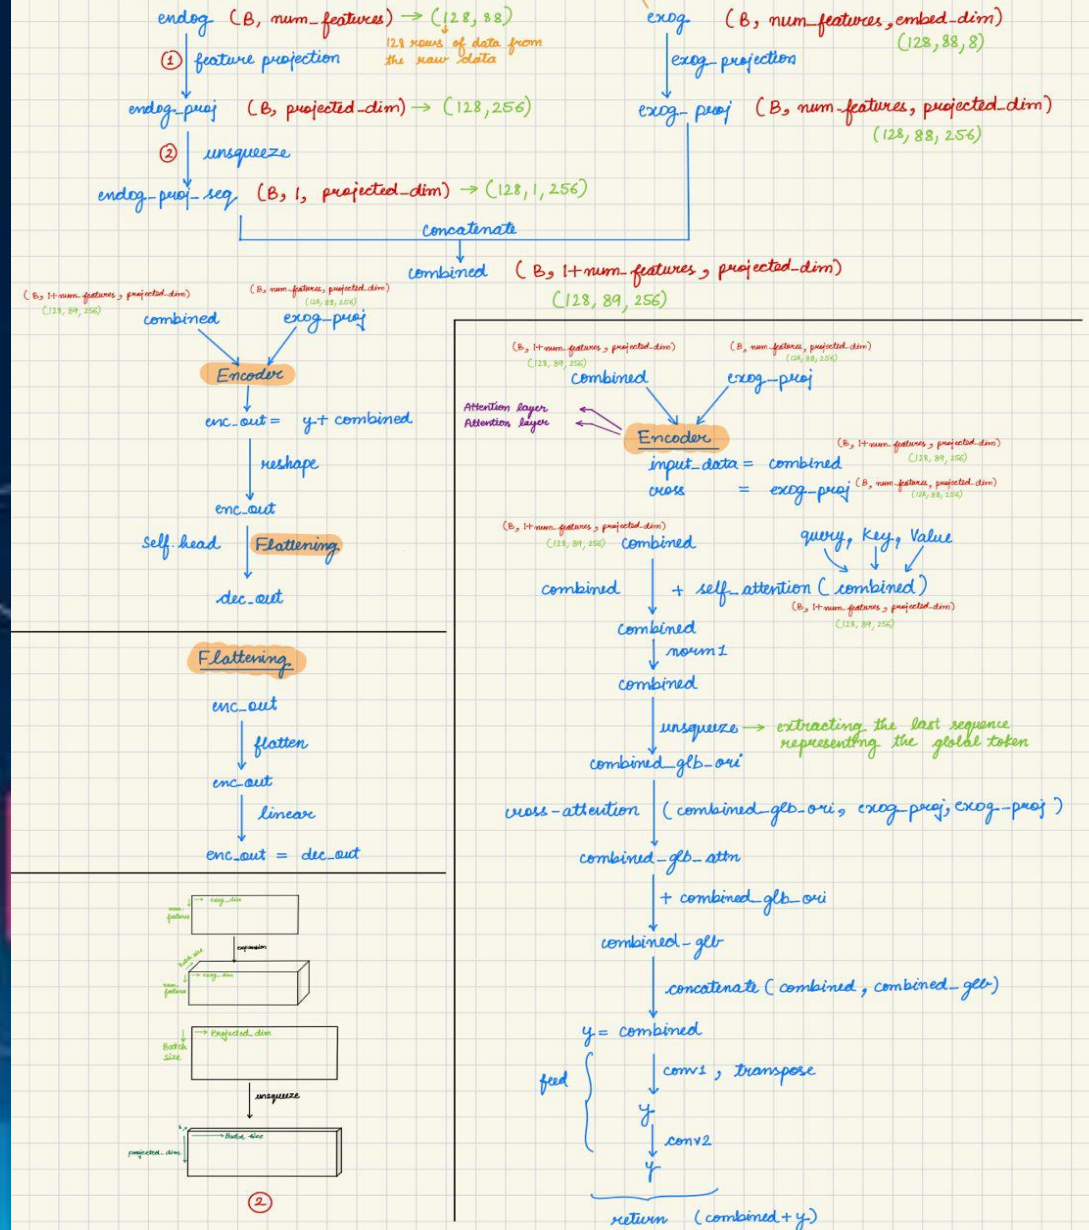 endog (B, num_features) → (128, 88)
128 rows of data from
the raw data
① feature projection
endog_proj (B, projected_dim) → (128,256)
② unsqueeze
endog_proj_seq (B, 1, projected_dim) → (128, 1, 256)
exog (B, num_features, embed_dim)
(128, 88, 8)
exog_projection
exog_proj (B, num_features, projected_dim)
(128, 88, 256)
concatenate
combined (B, 1+num_features, projected_dim)
(128, 89, 256)
(B, 1+num_features, projected_dim)
(128, 89, 256)
combined
(B, num_features, projected_dim)
(128, 88, 256)
exog_proj
Encoder
enc_out = y + combined
reshape
enc_out
Self.head Flattening
dec_out
Flattening
enc_out
flatten
enc_out
linear
enc_out = dec_out
num_features
→ exog_dim
expansion
Batch size
num_features
→ exog_dim
→ Projected_dim
Batch
size
unsqueeze
→ Batch size
projected_dim
②
(B, 1+num_features, projected_dim)
(128, 89, 256)
combined
(B, num_features, projected_dim)
(128, 88, 256)
exog_proj
Attention layer
Attention layer
Encoder
(B, 1+num_features, projected_dim)
(128, 89, 256)
input_data = combined
cross = exog_proj (B, num_features, projected_dim)
(128, 88, 256)
(B, 1+num_features, projected_dim)
(128, 89, 256) combined
query, Key, Value
combined + self_attention (combined)
(B, 1+num_features, projected_dim)
(128, 89, 256)
combined
norm1
combined
unsqueeze → extracting the last sequence
representing the global token
combined_glb_ori
cross-attention (combined_glb_ori, exog_proj, exog_proj)
combined_glb_attn
+ combined_glb_ori
combined_glb
concatenate (combined, combined_glb)
y = combined
feed
conv1, transpose
y
conv2
y
return (combined + y)